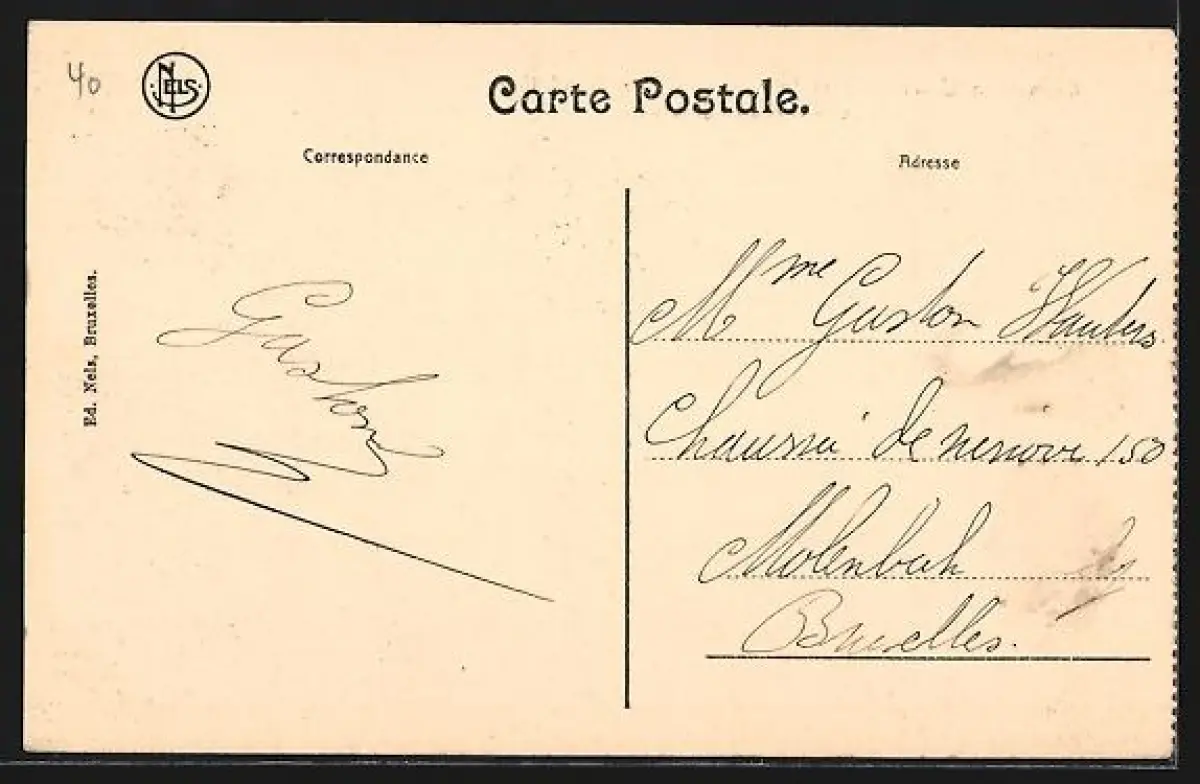 40
NELS
Carte Postale.
Correspondance
Adresse
Ed. Nels, Bruxelles.
Gaston
Mme Gaston Wauters
Chaussée de ninove 150
Molenbeek
Bruxelles.